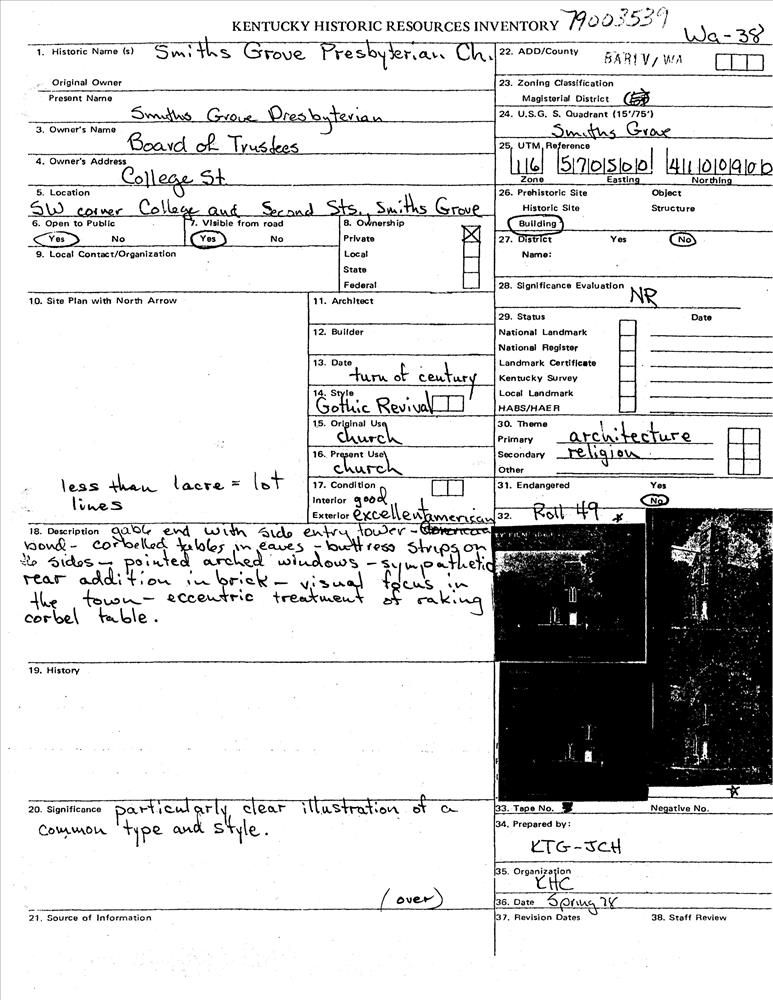 KENTUCKY HISTORIC RESOURCES INVENTORY 79003539
Wa-38
1. Historic Name (s) Smiths Grove Presbyterian Ch.
Original Owner
Present Name
Smiths Grove Presbyterian
3. Owner's Name Board of Trustees
4. Owner's Address College St
5. Location
SW corner College and Second Sts, Smiths Grove
6. Open to Public
Yes No
7. Visible from road
Yes No
8. Ownership
Private
Local
State
Federal
9. Local Contact/Organization
10. Site Plan with North Arrow
less than 1acre = lot
lines
11. Architect
12. Builder
13. Date
turn of century
14. Style
Gothic Revival
15. Original Use
church
16. Present Use
church
17. Condition
Interior good
Exterior excellent
18. Description gable end with side entry tower - american
bond - corbelled tables in eaves - buttress strips on
the sides - pointed arched windows - sympathetic
rear addition in brick - visual focus in
the town - eccentric treatment of raking
corbel table.
19. History
20. Significance particularly clear illustration of a
common type and style.
(over)
21. Source of Information
22. ADD/County BARIV/WA
23. Zoning Classification
Magisterial District
24. U.S.G. S. Quadrant (15'/75')
Smiths Grove
25. UTM Reference
16 570500 4100900
Zone Easting Northing
26. Prehistoric Site Object
Historic Site Structure
Building
27. District Yes No
Name:
28. Significance Evaluation NR
29. Status Date
National Landmark
National Register
Landmark Certificate
Kentucky Survey
Local Landmark
HABS/HAER
30. Theme
Primary architecture
Secondary religion
Other
31. Endangered Yes
No
32. Roll 49 *
33. Tape No. Negative No.
34. Prepared by:
KTG-JCH
35. Organization
KHC
36. Date Spring 78
37. Revision Dates 38. Staff Review